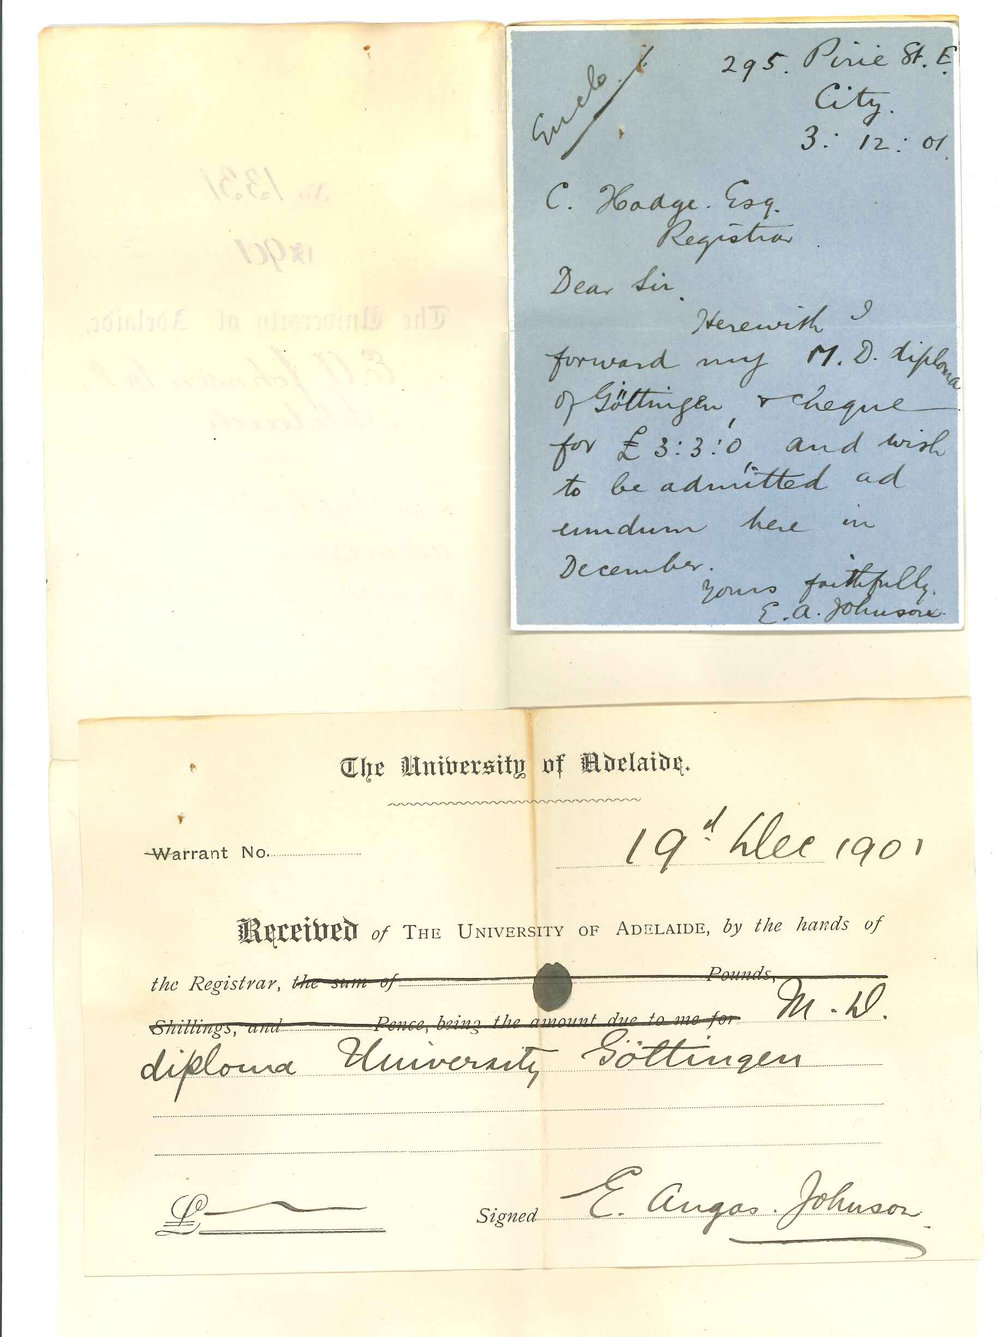 Encl.
295. Pirie St. E.
City.
3: 12: 01.
C. Hodge. Esq.
Registrar.
Dear Sir,
Herewith I
forward my M. D. diploma
of Göttingen, & cheque
for £ 3:3:0, and wish
to be admitted ad
eundum here in
December.
Yours faithfully,
E. A. Johnson.
No 1331
1901
The University of Adelaide.
E A Johnson
The University of Adelaide.
Warrant No.
19th Dec 1901
Received of THE UNIVERSITY OF ADELAIDE, by the hands of
the Registrar, the sum of Pounds,
Shillings, and Pence, being the amount due to me for M. D.
diploma University Göttingen
£
Signed E. Angas. Johnson.